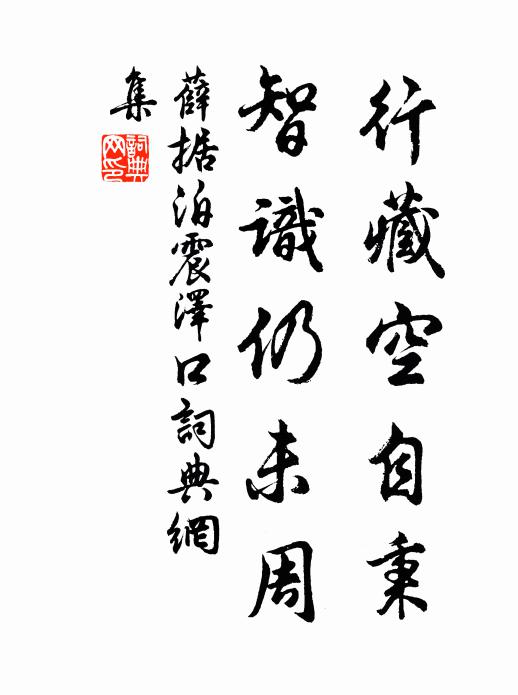 行藏空自秉
智識仍未周
薛据泊震澤口詞典網
集
詞典
网印